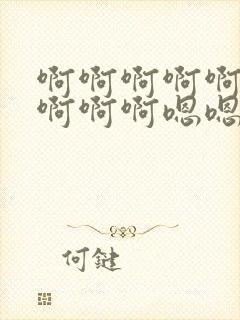 啊啊啊啊啊
啊啊啊嗯嗯
何健